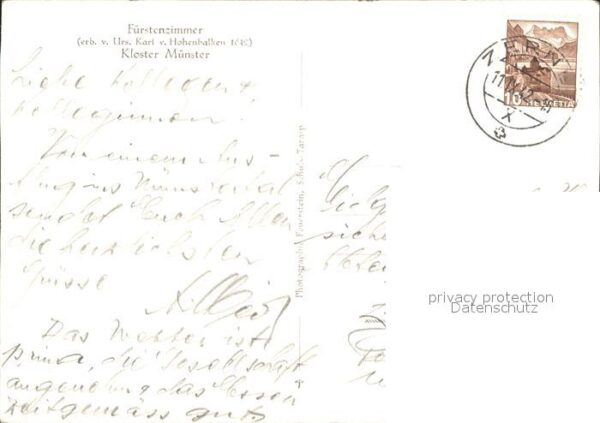 Fürstenzimmer
(erb. v. Urs. Karl v. Hohenbalken 1642)
Kloster Münster
Liebe Kollegen +
Kolleginnen!
Von einem Aus-
flug ins Münstertal
sendet Euch Allen
die herzlichsten
Grüsse
Das Wetter ist
prima, die Gesellschaft
angenehm + das Essen
zeitgemäss gut.
Photographie Feuerstein, Schuls-Tarasp
ZERN
11.IX.42
X
10 HELVETIA
privacy protection
Datenschutz